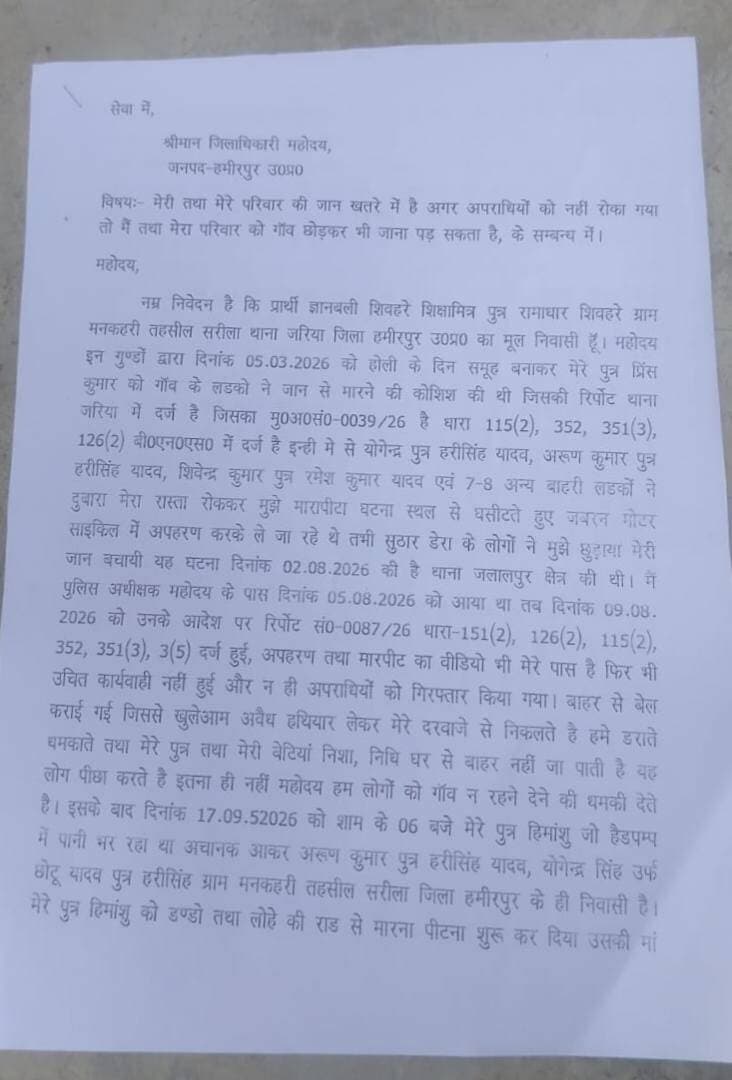 सेवा में,
श्रीमान जिलाधिकारी महोदय,
जनपद-हमीरपुर उ0प्र0
विषयः- मेरी तथा मेरे परिवार की जान खतरे में है अगर अपराधियों को नहीं रोका गया
तो मैं तथा मेरा परिवार को गॉव छोड़कर भी जाना पड़ सकता है, के सम्बन्ध में।
महोदय,
नम्र निवेदन है कि प्रार्थी ज्ञानबली शिवहरे शिक्षामित्र पुत्र रामाधार शिवहरे ग्राम
मनकहरी तहसील सरीला थाना जरिया जिला हमीरपुर उ0प्र0 का मूल निवासी हूॅ। महोदय
इन गुण्डों द्वारा दिनांक 05.03.2026 को होली के दिन समूह बनाकर मेरे पुत्र प्रिंस
कुमार को गॉव के लडको ने जान से मारने की कोशिश की थी जिसकी रिर्पोट थाना
जरिया में दर्ज है जिसका मु0अ0सं0-0039/26 है धारा 115(2), 352, 351(3),
126(2) बी0एन0एस0 में दर्ज है इन्ही मे से योगेन्द्र पुत्र हरीसिंह यादव, अरूण कुमार पुत्र
हरीसिंह यादव, शिवेन्द्र कुमार पुत्र रमेश कुमार यादव एवं 7-8 अन्य बाहरी लडकों ने
दुबारा मेरा रास्ता रोककर मुझे मारापीटा घटना स्थल से घसीटते हुए जबरन मोटर
साइकिल में अपहरण करके ले जा रहे थे तभी सुठार डेरा के लोगों ने मुझे छुड़ाया मेरी
जान बचायी यह घटना दिनांक 02.08.2026 की है थाना जलालपुर क्षेत्र की थी। मैं
पुलिस अधीक्षक महोदय के पास दिनांक 05.08.2026 को आया था तब दिनांक 09.08.
2026 को उनके आदेश पर रिर्पोट सं0-0087/26 धारा-151(2), 126(2), 115(2),
352, 351(3), 3(5) दर्ज हुई, अपहरण तथा मारपीट का वीडियो भी मेरे पास है फिर भी
उचित कार्यवाही नहीं हुई और न ही अपराधियों को गिरफ्तार किया गया। बाहर से बेल
कराई गई जिससे खुलेआम अवैध हथियार लेकर मेरे दरवाजे से निकलते है हमे डराते
धमकाते तथा मेरे पुत्र तथा मेरी बेटियां निशा, निधि घर से बाहर नहीं जा पाती है यह
लोग पीछा करते है इतना ही नहीं महोदय हम लोगों को गॉव न रहने देने की धमकी देते
है। इसके बाद दिनांक 17.09.52026 को शाम के 06 बजे मेरे पुत्र हिमांशु जो हैडपम्प
में पानी भर रहा था अचानक आकर अरूण कुमार पुत्र हरीसिंह यादव, योगेन्द्र सिंह उर्फ
छोटू यादव पुत्र हरीसिंह ग्राम मनकहरी तहसील सरीला जिला हमीरपुर के ही निवासी है।
मेरे पुत्र हिमांशु को डण्डो तथा लोहे की राड से मारना पीटना शुरू कर दिया उसकी मां